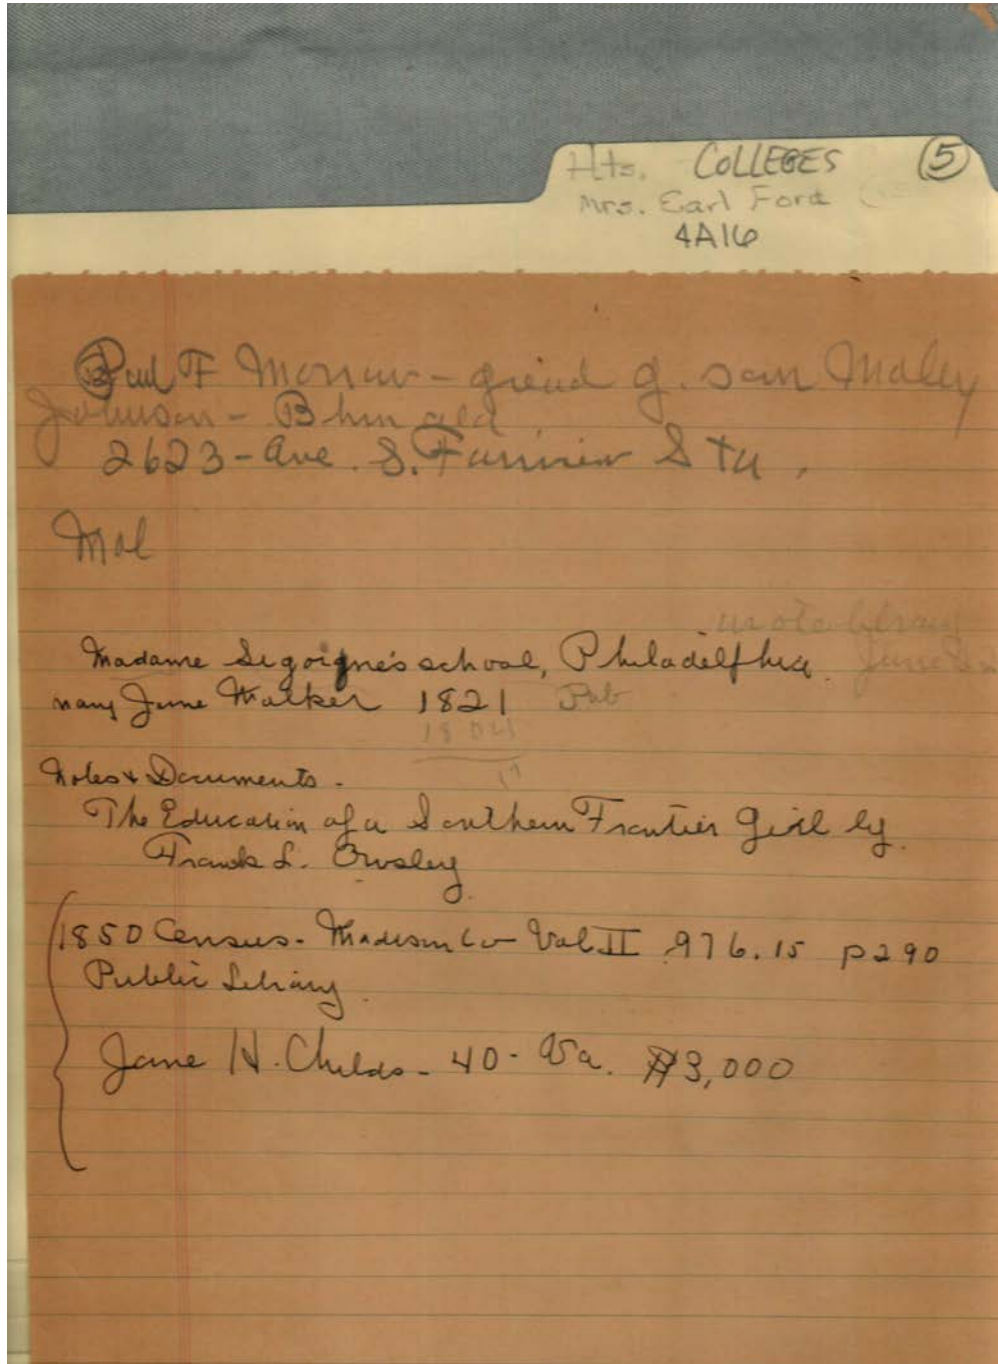 Hts. COLLEGES 5
Mrs. Earl Ford
4A16
Paul F Morrow - gread g. son
Johnson - Bhm ala
2623 - Ave. S. Sta.
Mol
Madame Segoigne's school, Philadelphia. June
mary Jane Walker 1821 Pub
1804
Notes & Documents.
The Education of a Southern Frontier Girl by
Frank L. Owsley
1850 Census - Madison Co - Vol II 976.15 p290
Public Library
Jane H. Childs - 40 - Va. $3,000